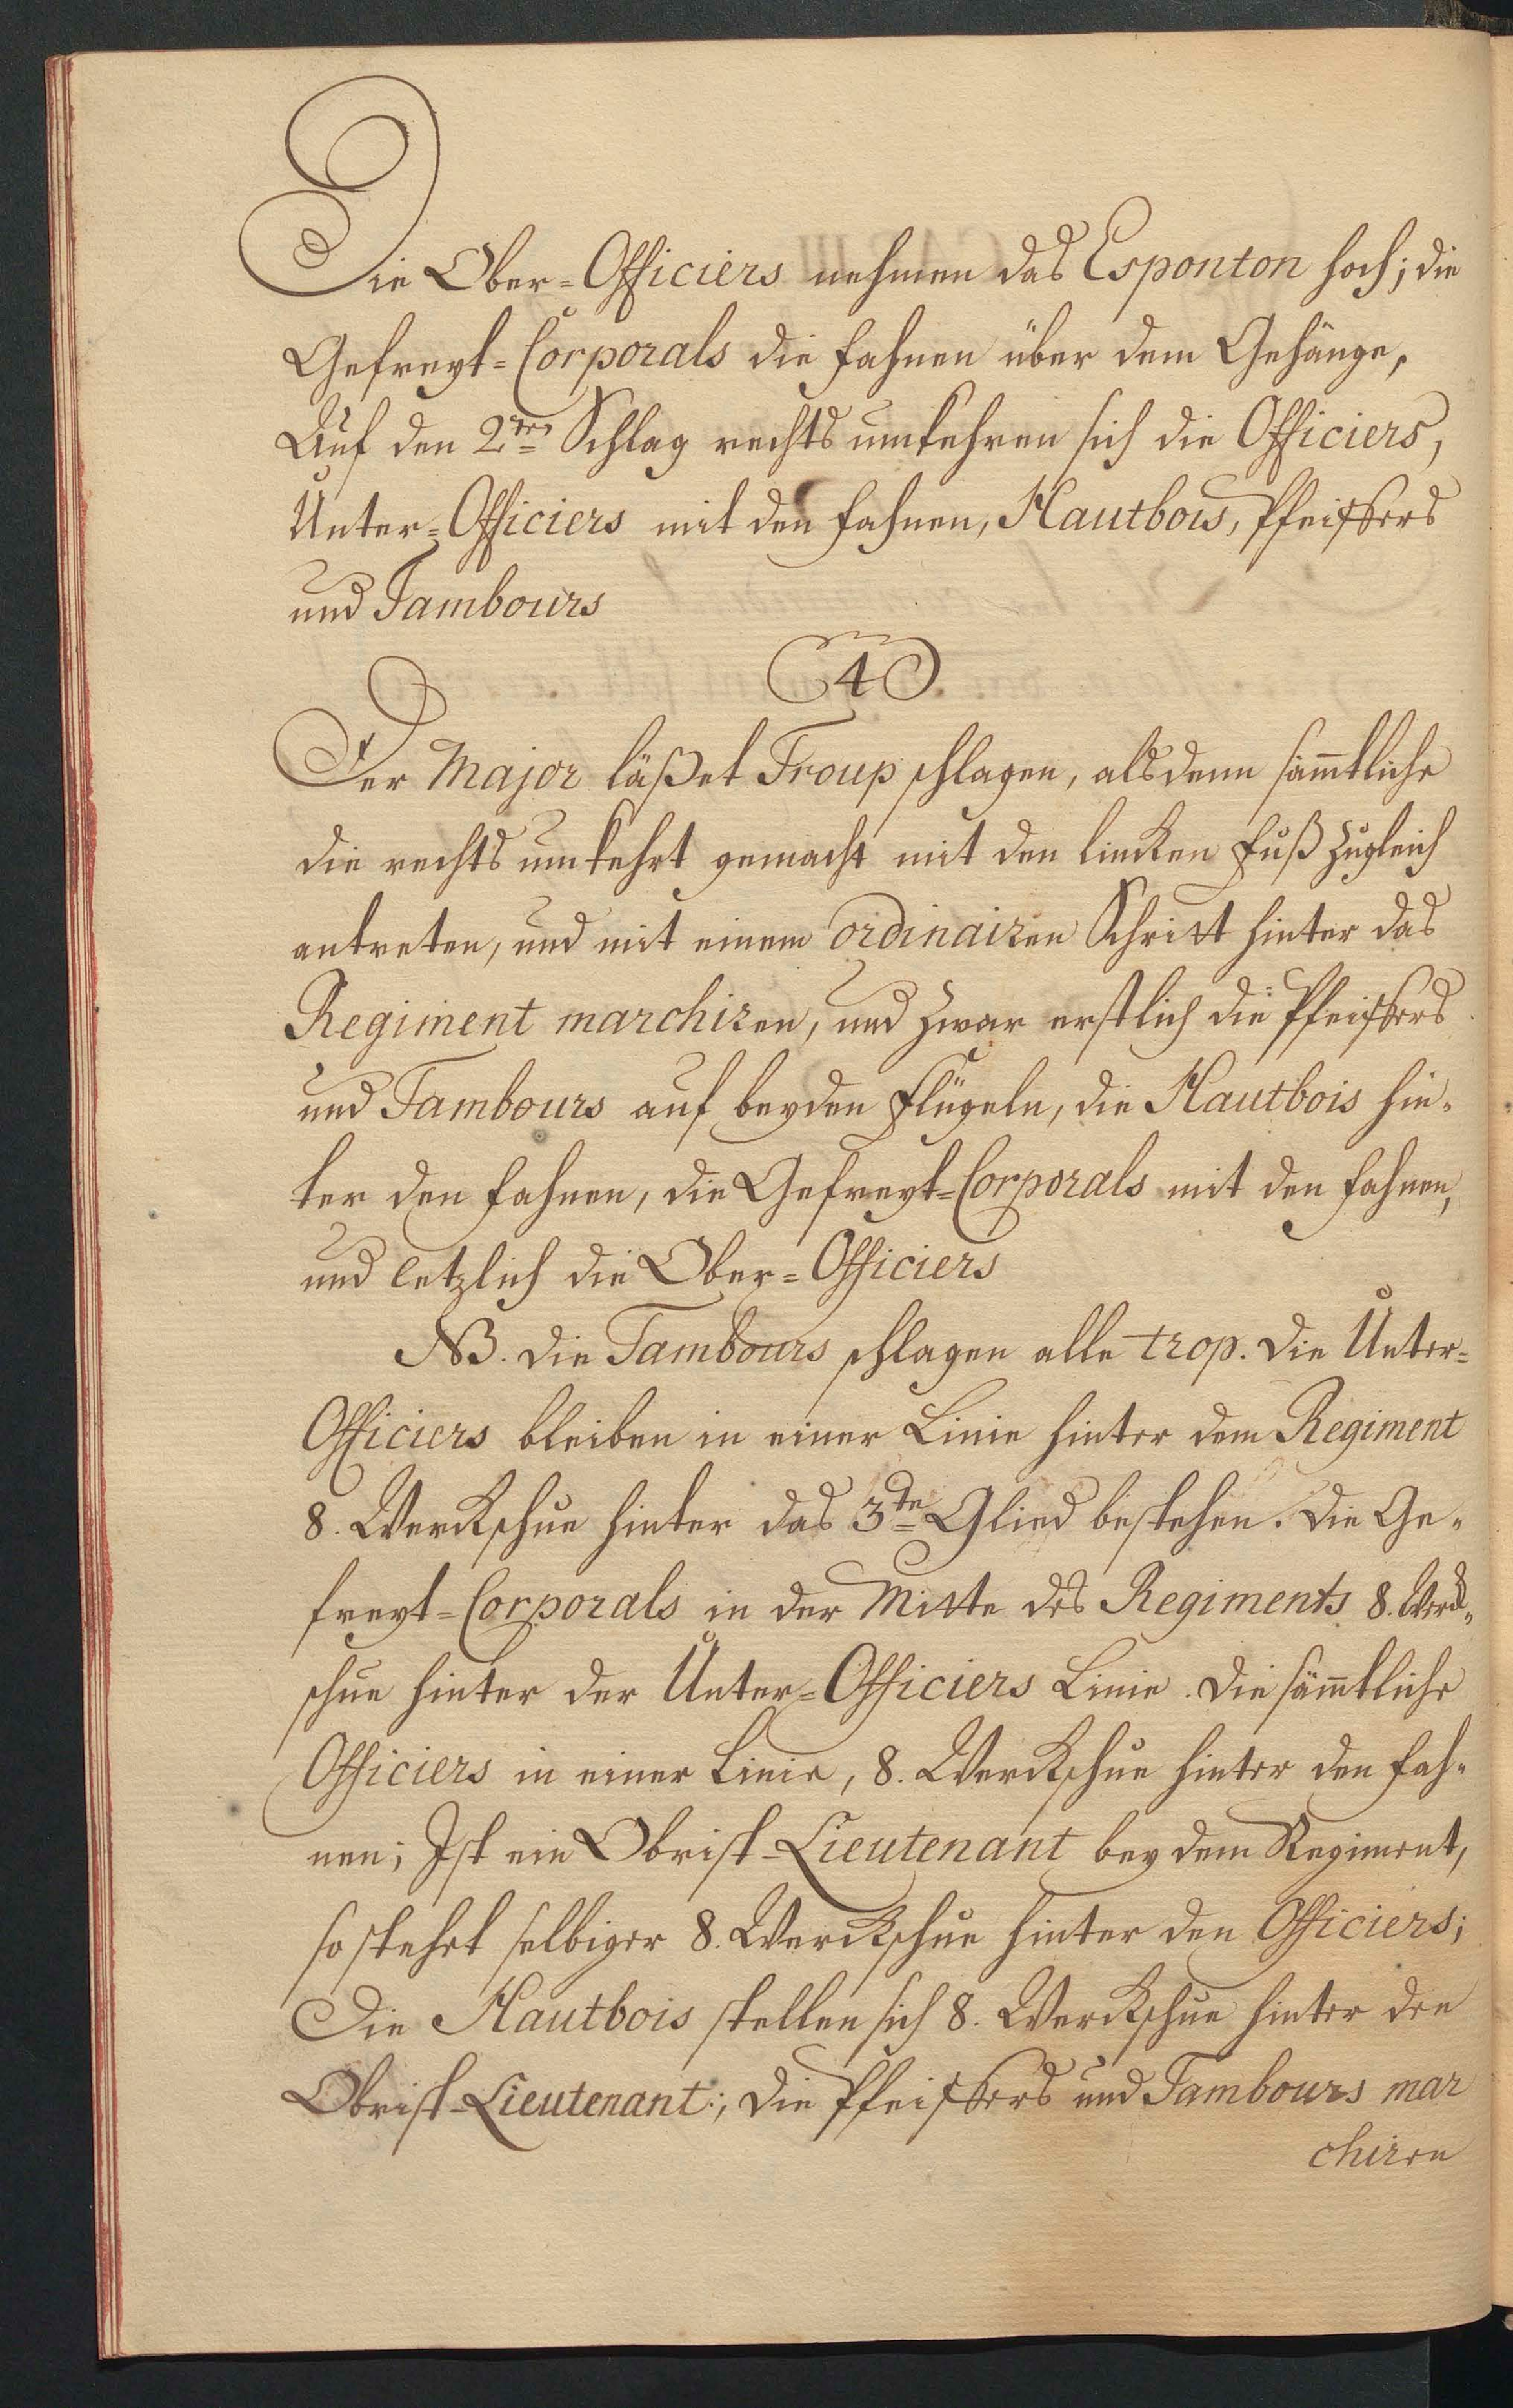 Die Ober=Officiers nehmen das Esponton hoch; die
Gefreyt=Corporals die fahnen über dem Gehänge,
Auf den 2ten Schlag rechts umkehren sich die Officiers,
Unter=Officiers mit den fahnen, Hautbois, Pfeiffers
und Tambours
4
Der Major läßet Troup schlagen, alsdenn sämtliche
die rechts umkehrt gemacht mit den lincken fuß zugleich
antreten, und mit einem ordinairen Schritt hinter das
Regiment marchiren, und zwar erstlich die Pfeiffers
und Tambours auf beyden flügeln, die Hautbois hin=
ter den fahnen, die Gefreyt=Corporals mit den fahnen,
und letzlich die Ober=Officiers
NB. die Tambours schlagen alle trop. die Unter=
Officiers bleiben in einer Linie hinter dem Regiment
8. Werckschue hinter das 3te Glied bestehen. die Ge=
freyt=Corporals in der Mitte des Regiments 8. Werck=
schue hinter der Unter=Officiers Linie. die sämtliche
Officiers in einer Linie, 8. Werckschue hinter den fah=
nen; Ist ein Obrist=Lieutenant bey dem Regiment,
so stehet selbiger 8. Werckschue hinter den Officiers;
Die Hautbois stellen sich 8. Werckschue hinter den
Obrist=Lieutenant:, die Pfeiffers und Tambours mar
chiren